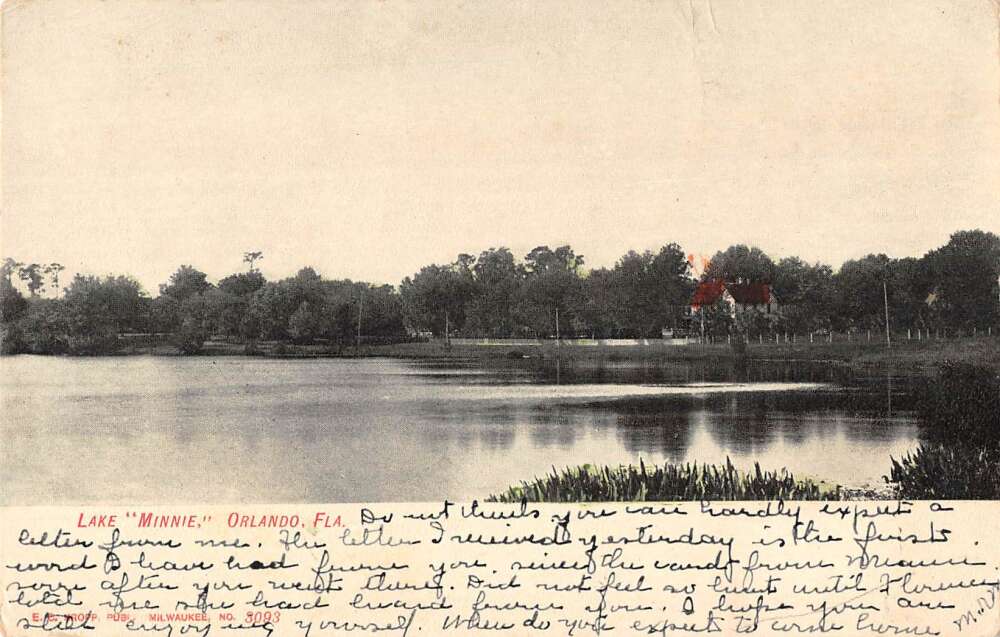 LAKE "MINNIE," ORLANDO, FLA. Do not think you can hardly expect a
letter from me. The letter I received yesterday is the first
word I have had from you, since the card from Miami
soon after you went there. Did not feel so hurt until Florence
told me she had heard from you. I hope you are
E. C. KROPP, PUBL. MILWAUKEE, NO. 3093
still enjoying yourself. When do you expect to come home